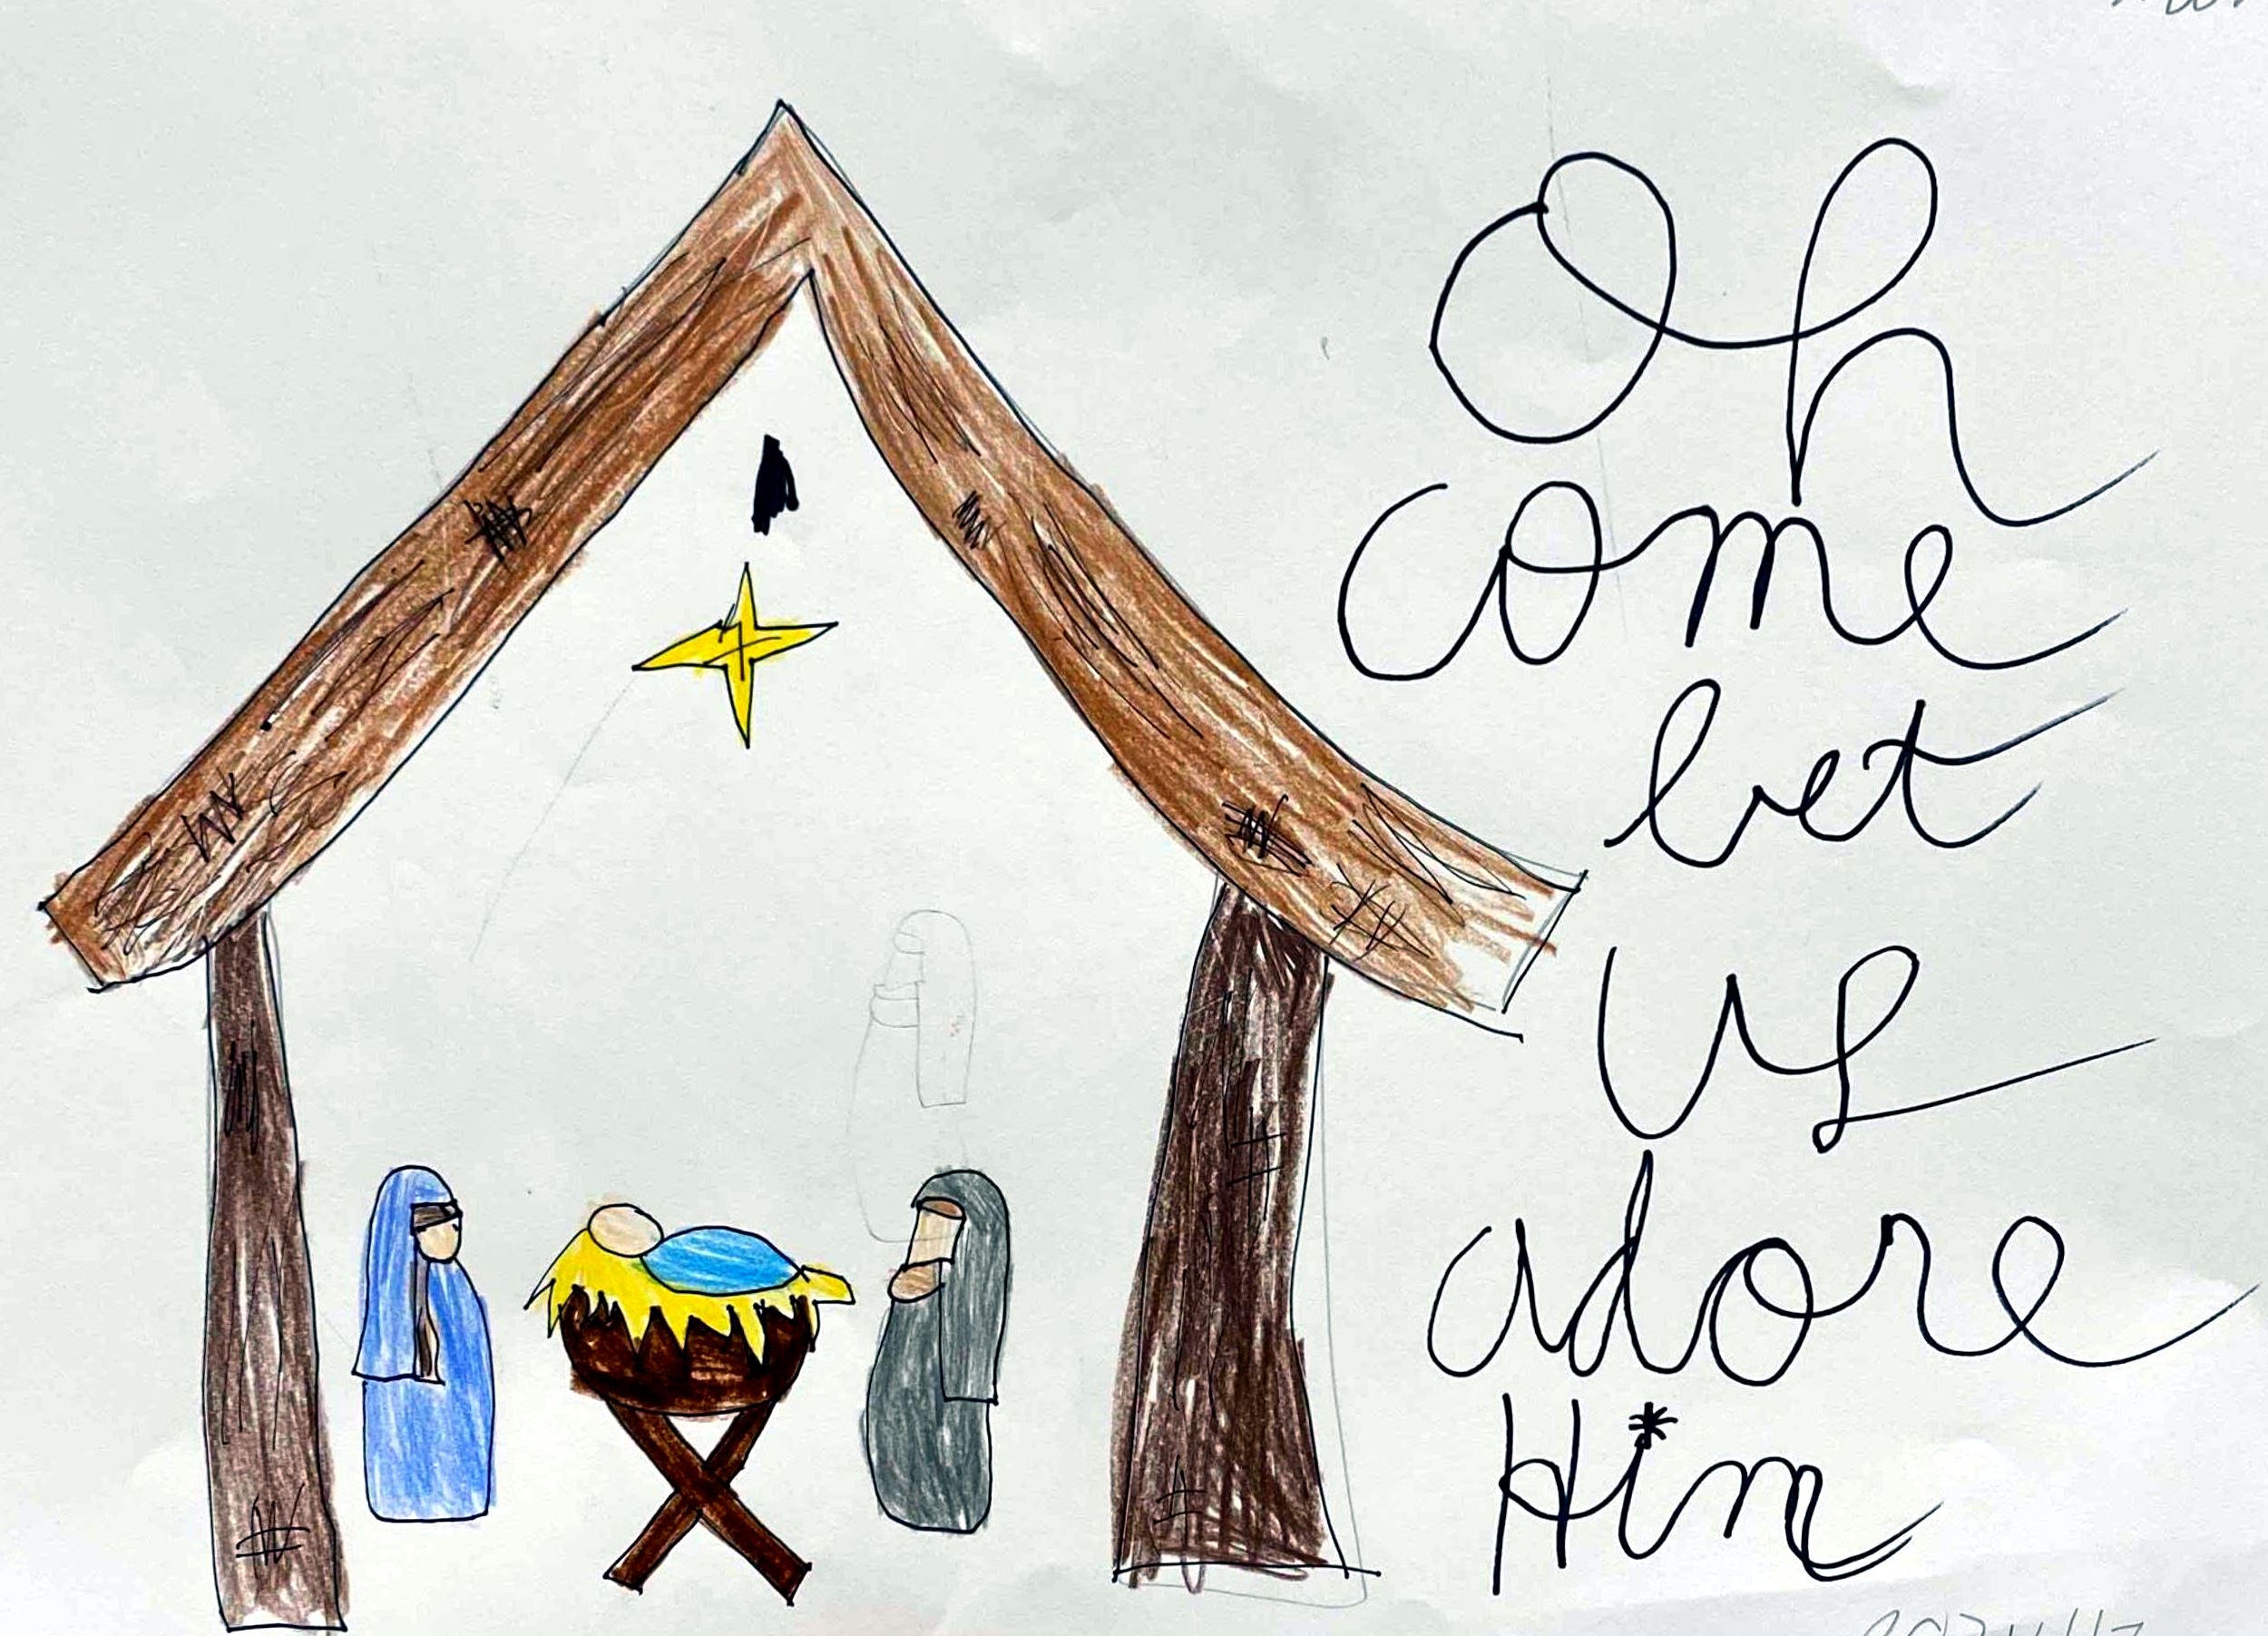 Oh
come
let
us
adore
Him